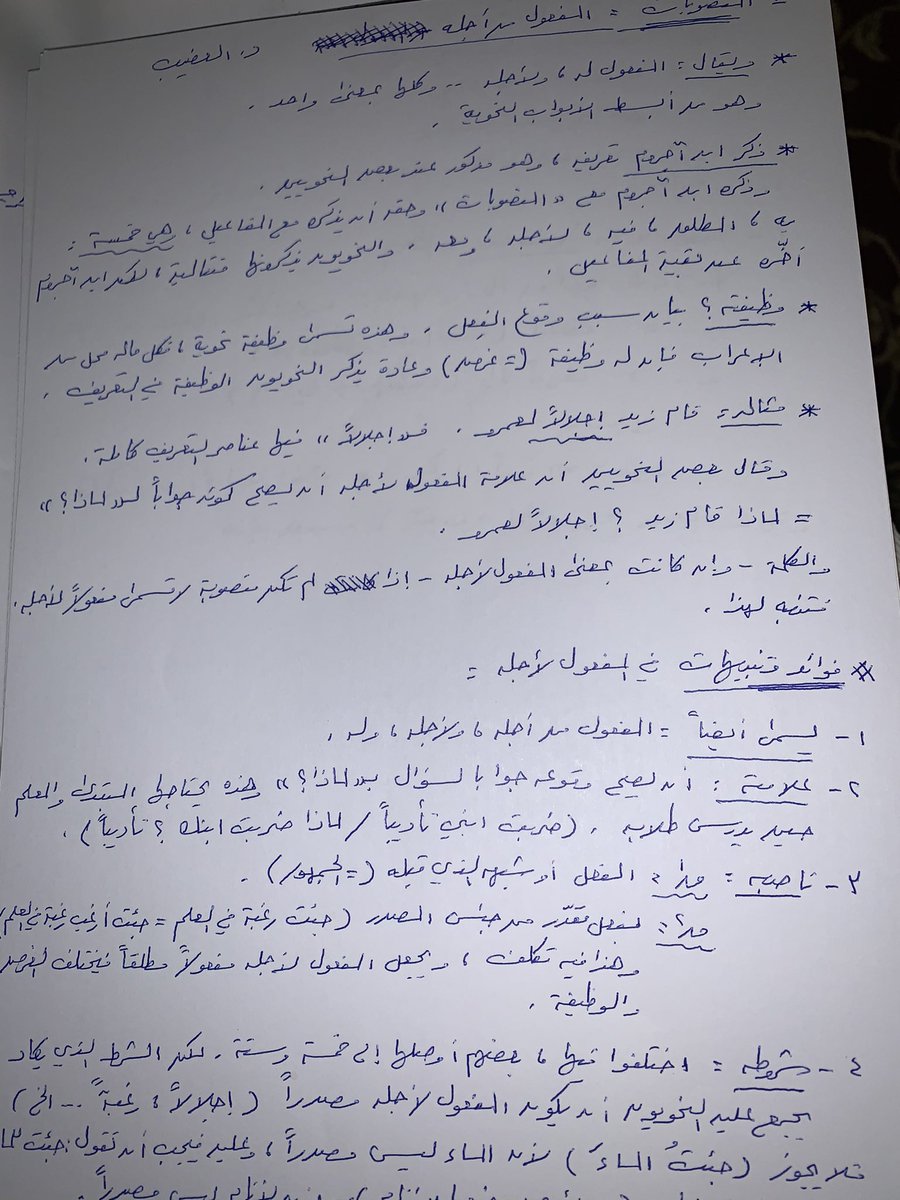 = المنصوبات = المفعول من أجله د. العضيب
* ويقال: المفعول له، ولأجله .. وكلها بمعنى واحد.
وهو من أبسط الأبواب النحوية.
* ذكر ابن آجروم تعريفه، وهو مذكور عند بعض النحويين.
وذكره ابن آجروم مع «المنصوبات» وحقه أن يذكره مع المفاعيل، وهي خمسة:
به، المطلق، فيه، لأجله، ومعه. والنحويون يذكرونها متتالية، لكن ابن آجروم
أخّره عن بقية المفاعيل.
* وظيفته؟ بيان سبب وقوع الفعل. وهذه تسمى وظيفة نحوية، فكل ماله محل من
الإعراب فإن له وظيفة (= غرض) وعادة يذكر النحويون الوظيفة في التعريف.
* مثاله = قام زيد إجلالاً لعمرو. فـ«إجلالاً» فيها عناصر التعريف كاملة.
وقال بعض النحويين أن علامة المفعول لأجله أن يصح كونه جواباً لـ«لماذا؟»
= لماذا قام زيد؟ إجلالاً لعمرو.
والكلمة - وإن كانت بمعنى المفعول لأجله - إذا لم تكن منصوبة لا تسمى مفعولاً لأجله.
فتنبه لهذا.
* فوائد وتنبيهات في المفعول لأجله =
١- يسمى أيضاً = المفعول من أجله، ولأجله، وله.
٢- علامته: أن يصح وقوعه جوابا لسؤال بـ«لماذا؟» وهذه يحتاجها المبتدئ والمعلم
حين يدرس طلابه. (ضربت ابني تأديباً / لماذا ضربت ابنك؟ تأديباً).
٣- ناصبه: الفعل أو شبهه الذي قبله (= الجمهور).
بفعل مقدّر من جنس المصدر (جئت رغبة في العلم = جئت أرغب رغبة في العلم)
وهذا فيه تكلف، ويجعل المفعول لأجله مفعولاً مطلقاً فيختلف الغرض
والوظيفة.
٤- شروطه = اختلفوا فيها، بعضهم أوصلها إلى خمسة وستة. لكن الشرط الذي يكاد
يجمع عليه النحويون أن يكون المفعول لأجله مصدراً (إجلالاً، رغبةً .. الخ)
فلا يجوز (جئتُ الماءَ) لأن الماء ليس مصدراً، وعليه فيجب أن تقول: جئت للماء
ليس مصدراً.